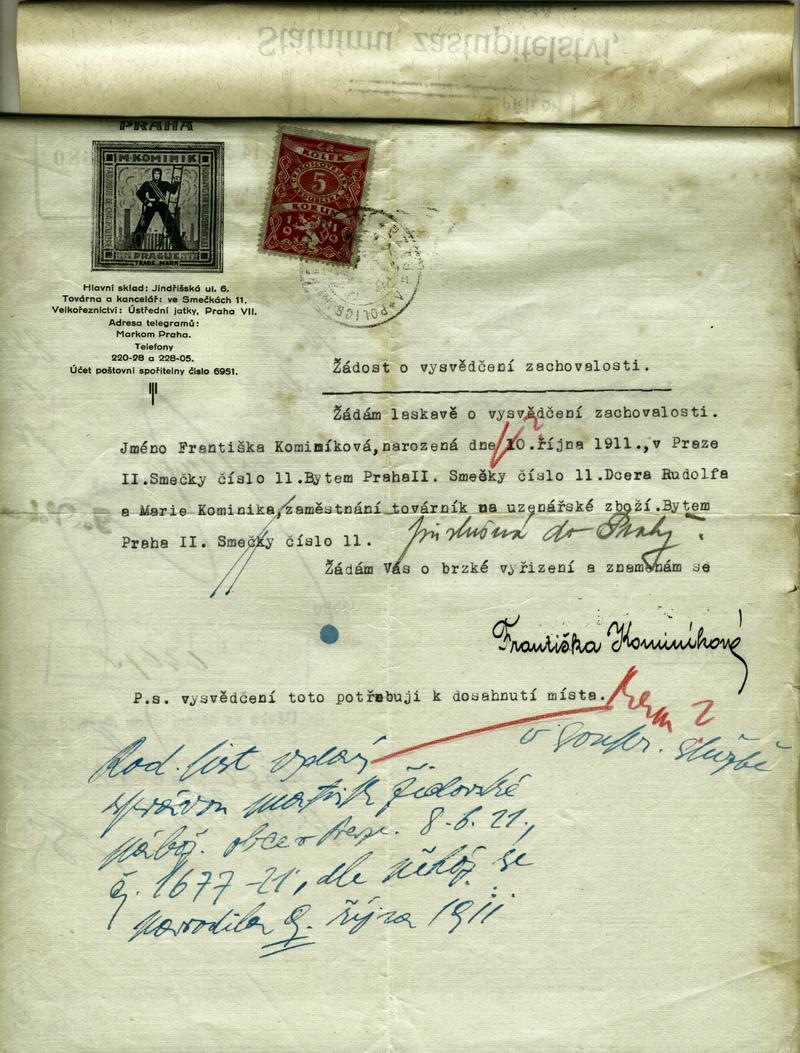 Státnímu zastupitelství,
PRAHA
M. KOMINIK
PRAGUE
TRADE MARK
Č.S.
KOLEK
ČESKOSLOVENSKÁ REPUBLIKA
5
KORUN
1919
POLICE
Hlavní sklad: Jindřišská ul. 6.
Továrna a kancelář: ve Smečkách 11.
Velkořeznictví: Ústřední jatky, Praha VII.
Adresa telegramů:
Markom Praha.
Telefony
220-28 a 228-05.
Účet poštovní spořitelny číslo 6951.
Žádost o vysvědčení zachovalosti.
Žádám laskavě o vysvědčení zachovalosti.
Jméno Františka Kominíková,narozená dne 10.října 1911.,v Praze
II.Smečky číslo 11.Bytem PrahaII. Smečky číslo 11.Dcera Rudolfa
a Marie Kominika,zaměstnání továrník na uzenářské zboží.Bytem
Praha II. Smečky číslo 11. příslušná do Prahy.
Žádám Vás o brzké vyřízení a znamenám se
Františka Kominíková
P.s. vysvědčení toto potřebuji k dosahnutí místa.
v soukr. službě
Rod. list vydaný
správou matrik židovské
nábož. obce v Praze. 8.6.21.,
čj. 1677-21, dle něhož se
narodila 9. října 1911.